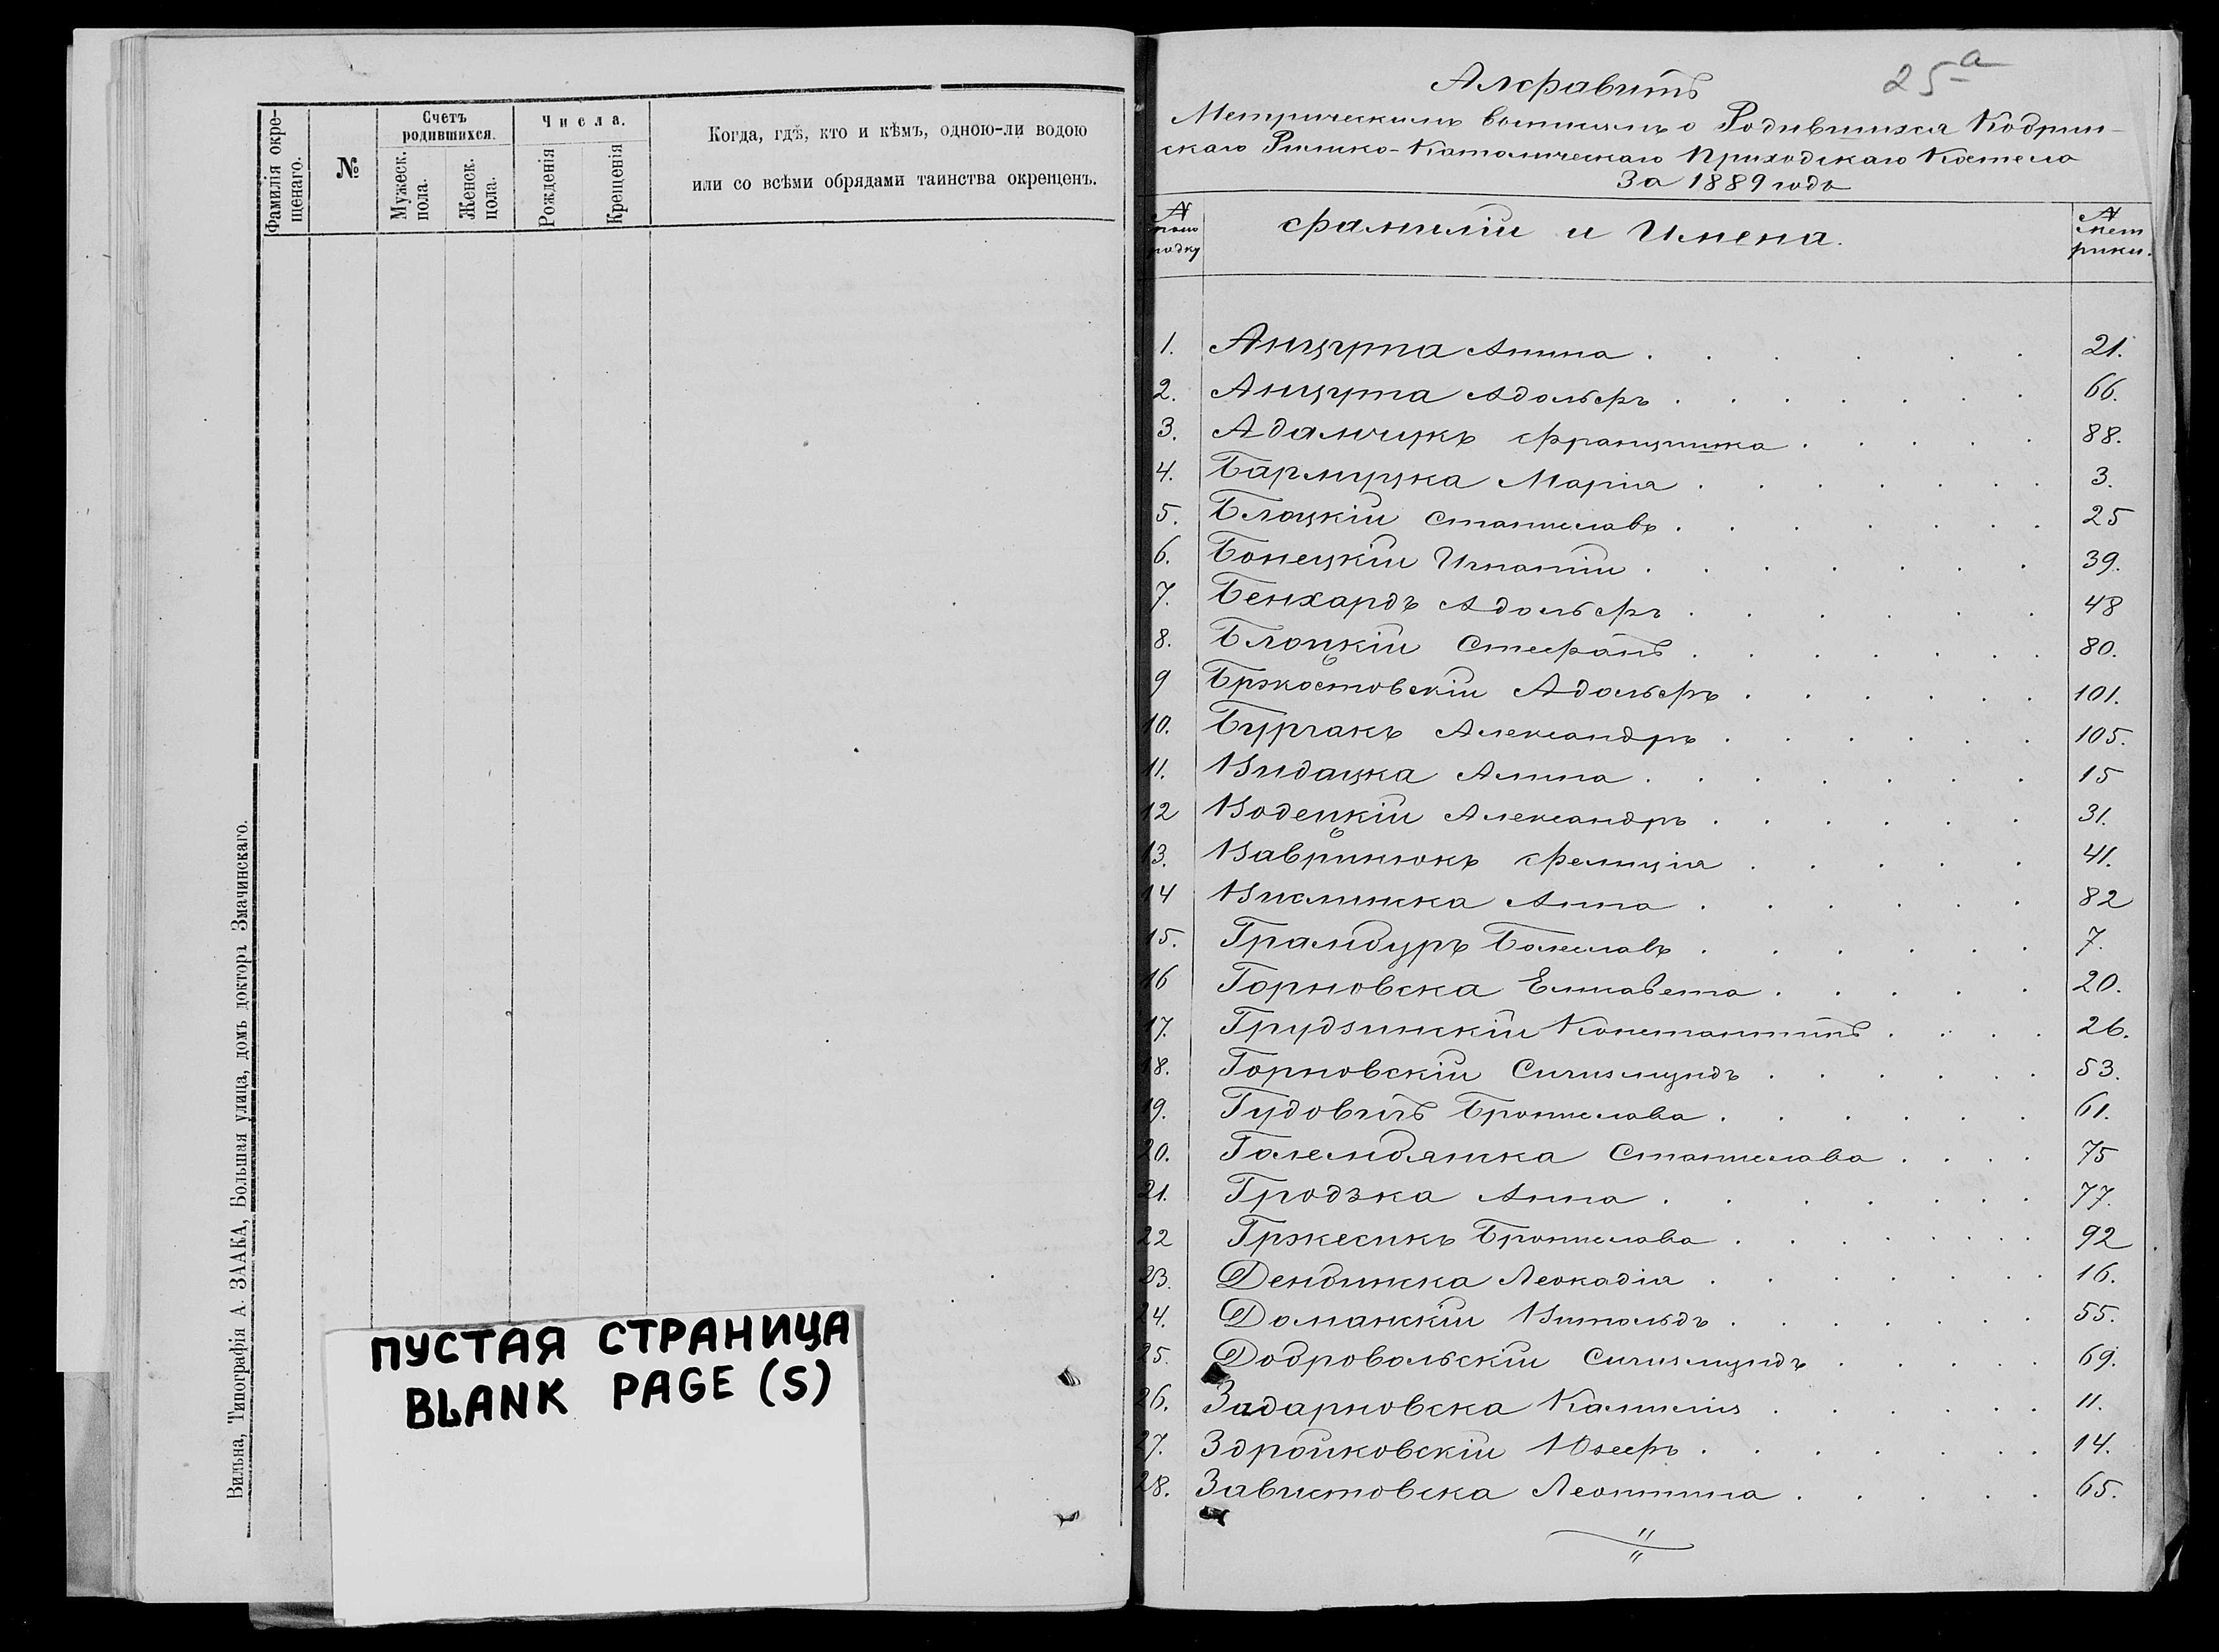 Фамилія окре-
щенаго.
№
Счетъ
родившихся.
Мужеск.
пола.
Женск.
пола.
Числа.
Рожденія
Крещенія
Когда, гдѣ, кто и кѣмъ, одною-ли водою
или со всѣми обрядами таинства окрещенъ.
Вильна, Типографія А. ЗААКА, Большая улица, домъ доктора Змачинскаго.
ПУСТАЯ СТРАНИЦА
BLANK PAGE (S)
25а
Алфавитъ
Метрическимъ выпискамъ о Родившихся Кобрин-
скаго Римско-Католическаго Приходскаго Костела
За 1889 годъ
№
рядку
Фамиліи и Имена.
№
мет
рики.
1. Анцута Анна 21.
2. Анцута Адольфъ 66.
3. Адамчукъ Францишка 88.
4. Бармуцка Марія 3.
5. Блоцкій Станиславъ 25
6. Бонецкій Игнатій 39.
7. Бенхардъ Адольфъ 48
8. Блоцкій Стефанъ 80.
9 Бржостовскій Адольфъ 101.
10. Бургакъ Александръ 105.
11. Видацка Анна 15
12 Водецкій Александръ 31.
13. Вавринюкъ Фелиція 41.
14 Вислинска Анна 82
15. Грамбуръ Болеславъ 7.
16 Горновска Елисавета 20.
17. Грудзинскій Константинъ 26.
18. Горновскій Сигизмундъ 53.
19. Гудовичъ Бронислава 61.
20. Голембянска Станислава 75
21. Гродзка Анна 77.
22 Гржесикъ Бронислава 92
23. Дембинска Леокадія 16.
24. Доманскій Витольдъ 55.
25. Добровольскій Сигизмундъ 69.
26. Задарновска Камилія 11.
27. Здройковскій Юзефъ 14.
28. Завистовска Леонтина 65.